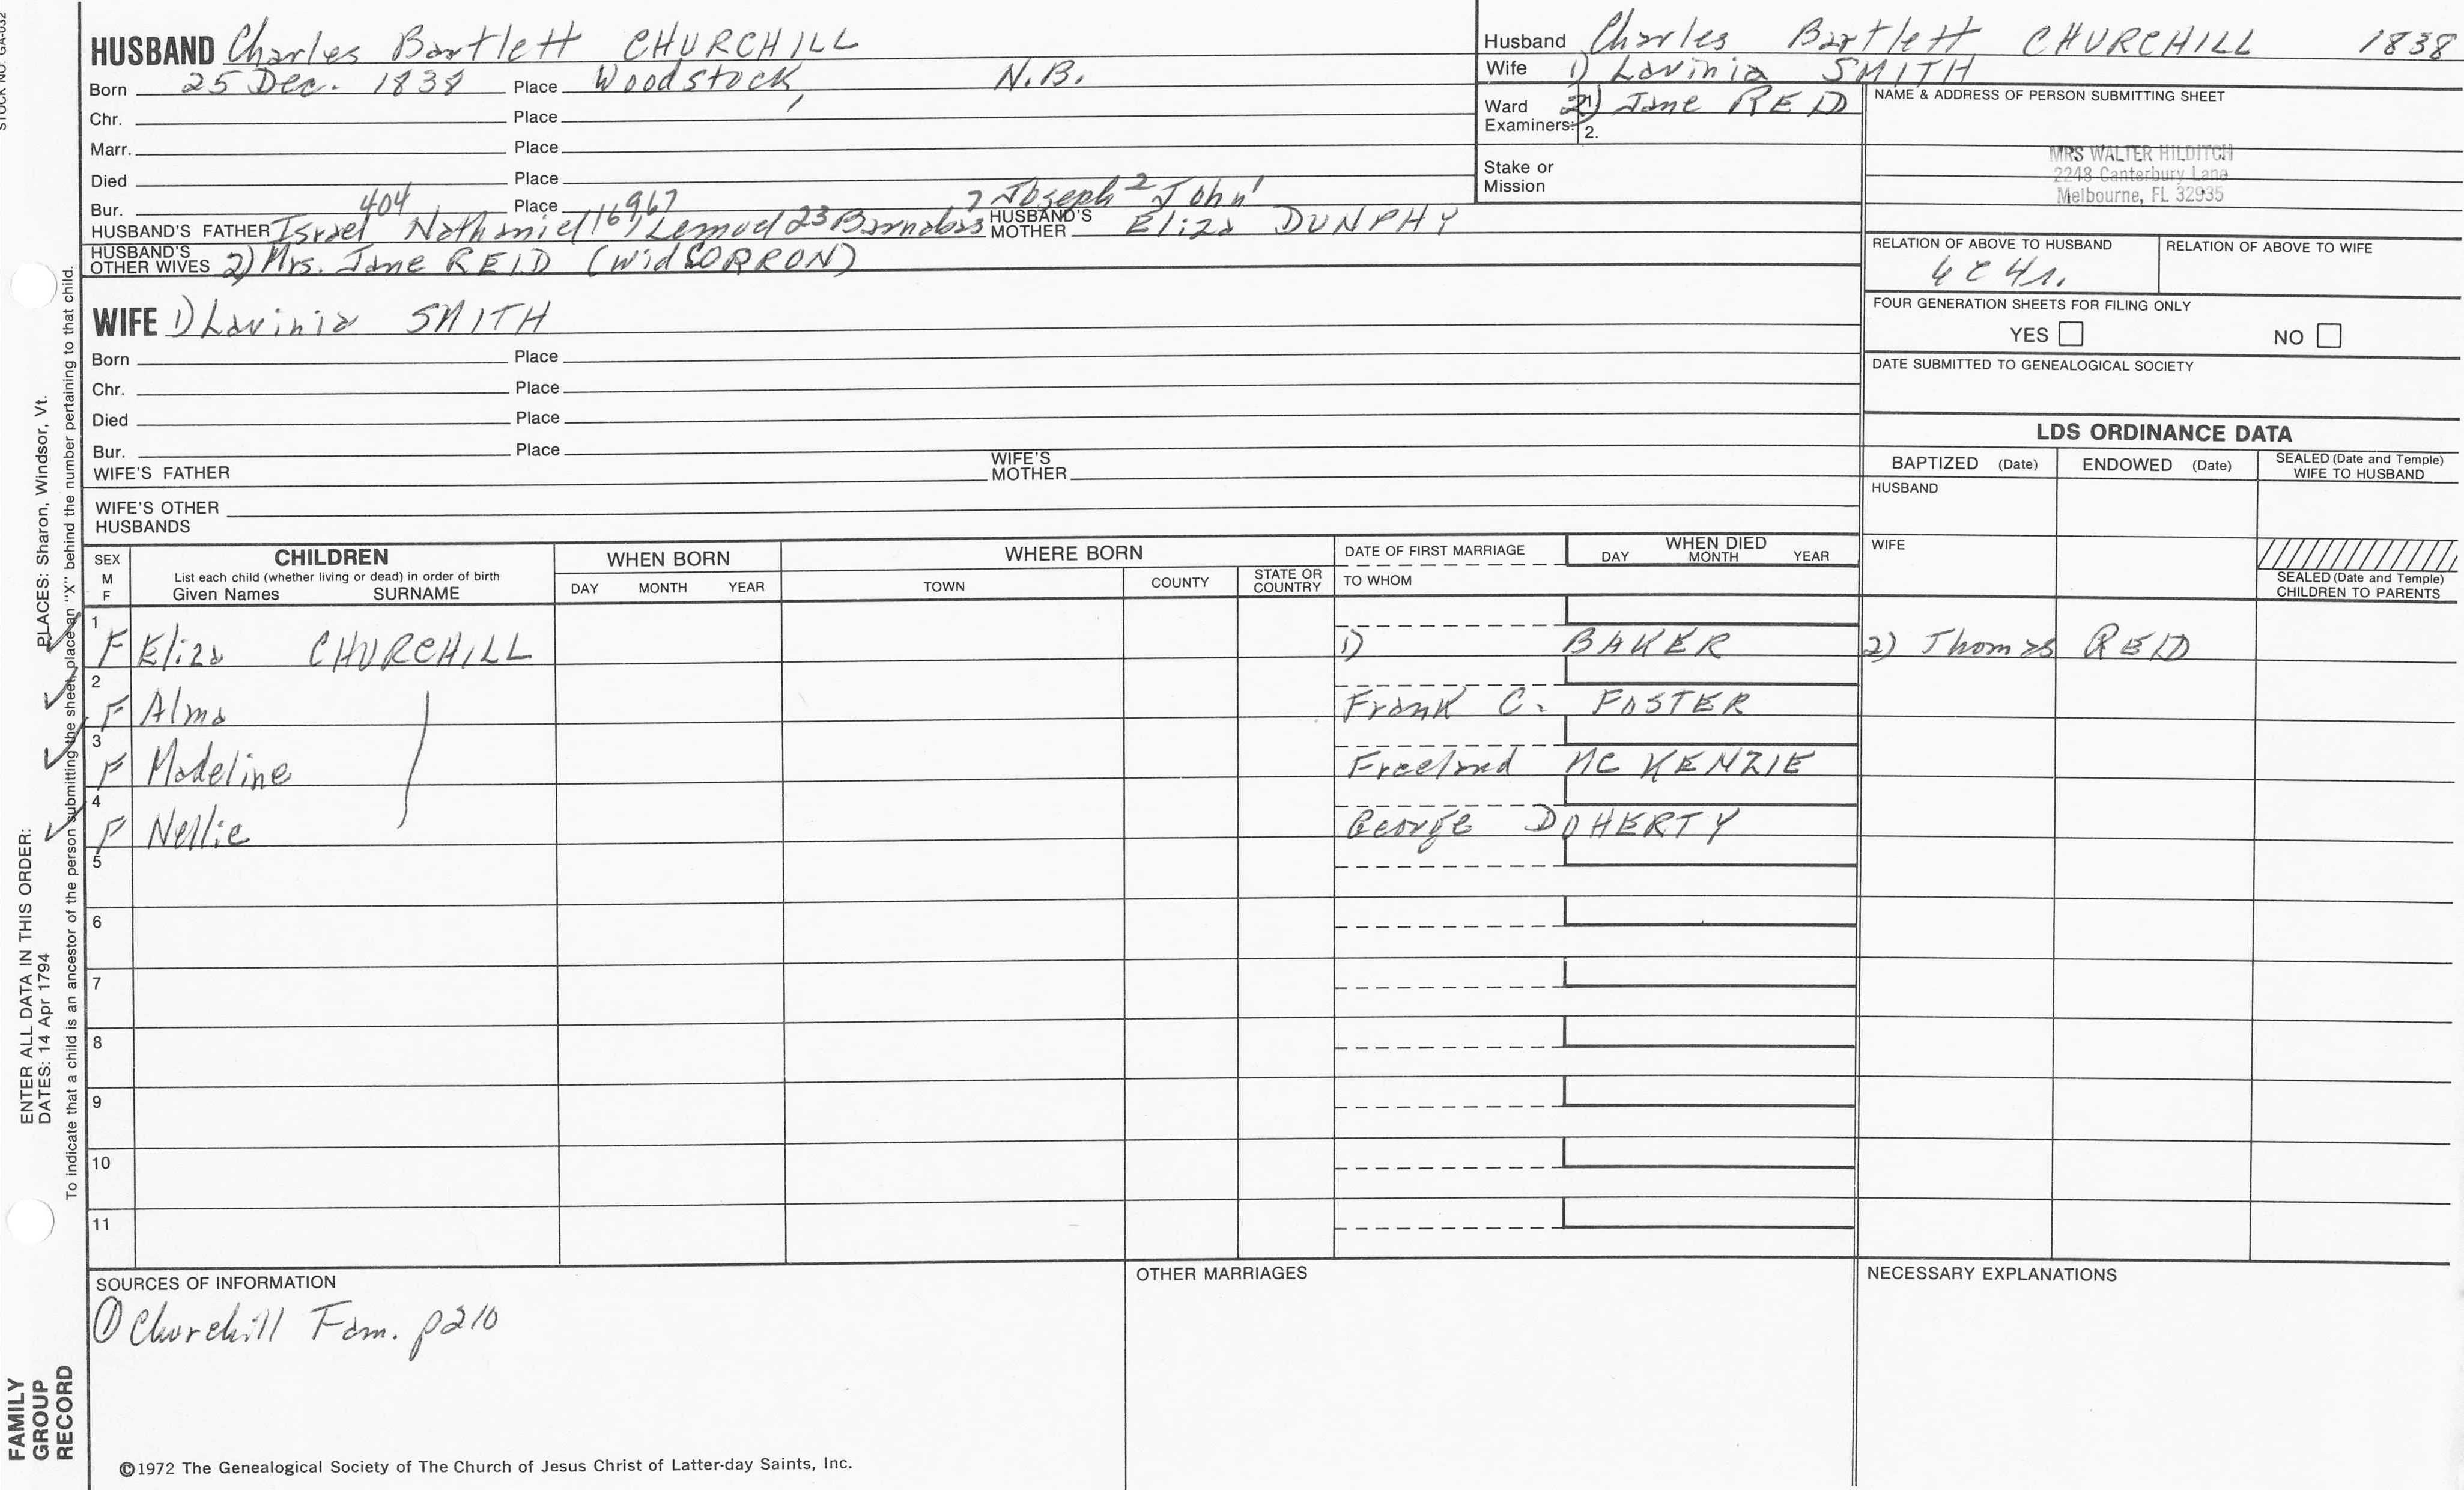 STOCK NO. GA-032
HUSBAND Charles Bartlett CHURCHILL
Born 25 Dec. 1838 Place Woodstock, N.B.
Chr. Place
Marr. Place
Died Place
Bur. Place
404 1696 7 7 Joseph 2 John 1
HUSBAND'S FATHER Israel Nathaniel Lemuel 23 Barnabas HUSBAND'S MOTHER Eliza DUNPHY
HUSBAND'S OTHER WIVES 2) Mrs. Jane REID (wid CORRON)
WIFE 1) Lavinia SMITH
Born Place
Chr. Place
Died Place
Bur. Place
WIFE'S FATHER WIFE'S MOTHER
WIFE'S OTHER HUSBANDS
Husband Charles Bartlett CHURCHILL 1838
Wife 1) Lavinia SMITH
Ward 1. 2) Jane REID
Examiners: 2.
Stake or Mission
NAME & ADDRESS OF PERSON SUBMITTING SHEET
MRS WALTER HILDITCH
2248 Canterbury Lane
Melbourne, FL 32935
RELATION OF ABOVE TO HUSBAND RELATION OF ABOVE TO WIFE
4C4r.
FOUR GENERATION SHEETS FOR FILING ONLY
YES NO
DATE SUBMITTED TO GENEALOGICAL SOCIETY
LDS ORDINANCE DATA
BAPTIZED (Date) ENDOWED (Date) SEALED (Date and Temple) WIFE TO HUSBAND
HUSBAND
WIFE
SEALED (Date and Temple) CHILDREN TO PARENTS
SEX M F
CHILDREN
List each child (whether living or dead) in order of birth
Given Names SURNAME
WHEN BORN
DAY MONTH YEAR
WHERE BORN
TOWN COUNTY STATE OR COUNTRY
DATE OF FIRST MARRIAGE
TO WHOM
WHEN DIED
DAY MONTH YEAR
1 F Eliza CHURCHILL 1) BAKER 2) Thomas REID
2 F Alma Frank C. FOSTER
3 F Madeline Freeland MC KENZIE
4 F Nellie George DOHERTY
5
6
7
8
9
10
11
SOURCES OF INFORMATION
① Churchill Fam. p210
OTHER MARRIAGES
NECESSARY EXPLANATIONS
©1972 The Genealogical Society of The Church of Jesus Christ of Latter-day Saints, Inc.
FAMILY
GROUP
RECORD
ENTER ALL DATA IN THIS ORDER:
DATES: 14 Apr 1794 PLACES: Sharon, Windsor, Vt.
To indicate that a child is an ancestor of the person submitting the sheet, place an "X" behind the number pertaining to that child.